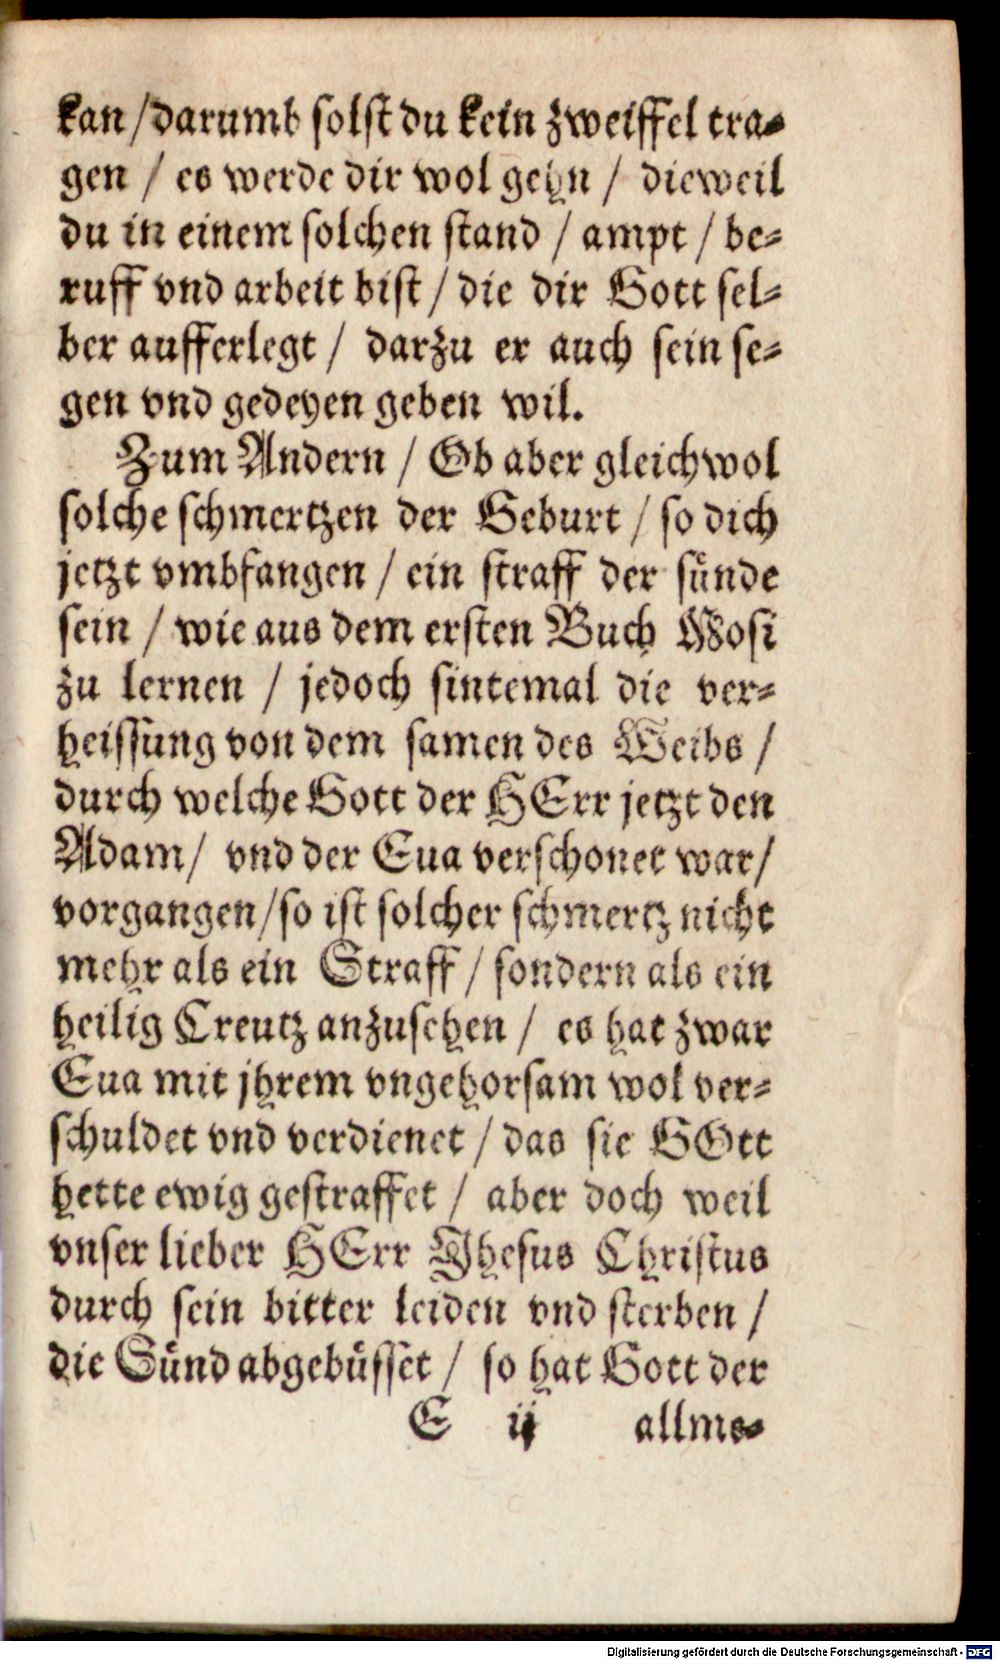 kan / darumb solst du kein zweiffel tra-
gen / es werde dir wol gehn / dieweil
du in einem solchen stand / ampt / be-
ruff vnd arbeit bist / die dir Gott sel-
ber aufferlegt / darzu er auch sein se-
gen vnd gedeyen geben wil.
Zum Andern / Ob aber gleichwol
solche schmertzen der Geburt / so dich
jetzt vmbfangen / ein straff der sünde
sein / wie aus dem ersten Buch Mosi
zu lernen / jedoch sintemal die ver-
heissung von dem samen des Weibs /
durch welche Gott der HErr jetzt den
Adam / vnd der Eua verschonet war /
vorgangen / so ist solcher schmertz nicht
mehr als ein Straff / sondern als ein
heilig Creutz anzusehen / es hat zwar
Eua mit jhrem vngehorsam wol ver-
schuldet vnd verdienet / das sie GOtt
hette ewig gestraffet / aber doch weil
vnser lieber HErr Jhesus Christus
durch sein bitter leiden vnd sterben /
die Sünd abgebüsset / so hat Gott der
E ij allme-
Digitalisierung gefördert durch die Deutsche Forschungsgemeinschaft - DFG